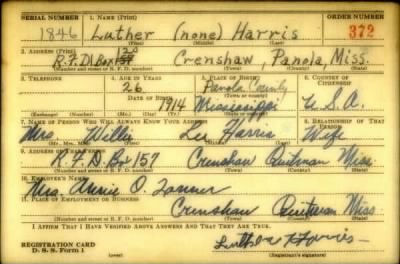 SERIAL NUMBER 1. NAME (Print) ORDER NUMBER
1846 Luther (none) Harris 372
(First) (Middle) (Last)
2. ADDRESS (Print)
R.F.D. Box 157 120 Crenshaw, Panola, Miss.
(Number and street or R. F. D. number) (Town) (County) (State)
3. TELEPHONE 4. AGE IN YEARS 5. PLACE OF BIRTH 6. COUNTRY OF CITIZENSHIP
26 Panola County
DATE OF BIRTH (Town or county)
1914 Mississippi U.S.A.
(Exchange) (Number) (Mo.) (Day) (Yr.) (State or country)
7. NAME OF PERSON WHO WILL ALWAYS KNOW YOUR ADDRESS 8. RELATIONSHIP OF THAT PERSON
Mrs. Willie Lee Harris Wife
(Mr., Mrs., Miss) (First) (Middle) (Last)
9. ADDRESS OF THAT PERSON
R.F.D. Box 157 Crenshaw Quitman Miss
(Number and street or R. F. D. number) (Town) (County) (State)
10. EMPLOYER'S NAME
Mrs. Annie O.
11. PLACE OF EMPLOYMENT OR BUSINESS
Crenshaw Quitman Miss
(Number and street or R. F. D. number) (Town) (County) (State)
I AFFIRM THAT I HAVE VERIFIED ABOVE ANSWERS AND THAT THEY ARE TRUE.
REGISTRATION CARD
D. S. S. Form 1
Luther Harris
(Registrant's signature)